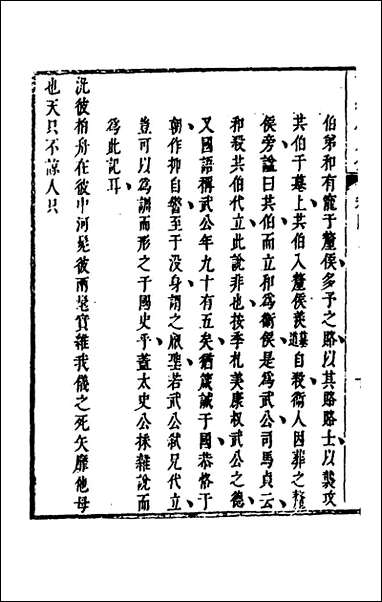 伯弟和有寵于釐侯多予之賂以其賂賂士以襲攻
共伯于墓上共伯入釐侯羨墓道自殺衛人因葬之釐
侯旁謚曰共伯而立和爲衛侯是爲武公司馬貞云
和殺共伯代立此說非也按季札美康叔武公之德
又國語稱武公年九十有五矣猶箴誡于國恭恪于
朝作抑自警至于没身謂之叡聖若武公弑兄代立
豈可以爲訓而形之于國史乎蓋太史公採雜說而
爲此記耳
汎彼栢舟在彼中河髧彼兩髦實維我儀之死矢靡他母
也天只不諒人只